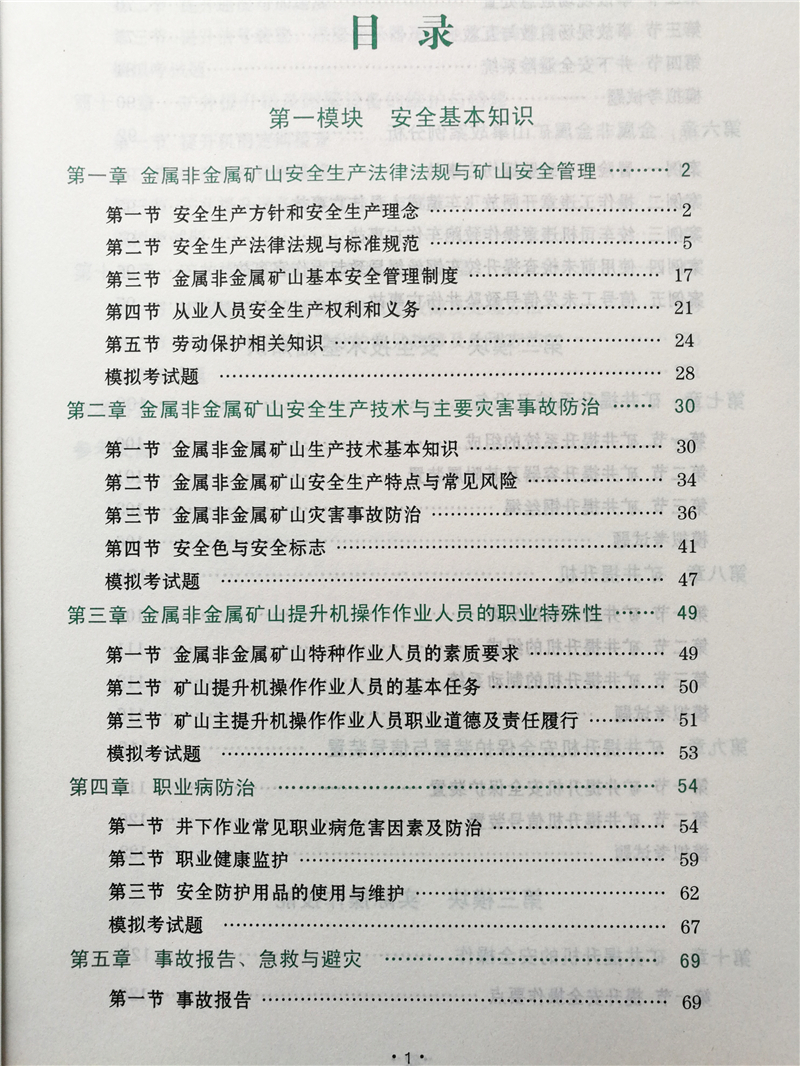 目 录
第一模块 安全基本知识
第一章 金属非金属矿山安全生产法律法规与矿山安全管理 ……… 2
第一节 安全生产方针和安全生产理念 ……………………… 2
第二节 安全生产法律法规与标准规范 ……………………… 5
第三节 金属非金属矿山基本安全管理制度 ………………… 17
第四节 从业人员安全生产权利和义务 ……………………… 21
第五节 劳动保护相关知识 …………………………………… 24
模拟考试题 …………………………………………………… 28
第二章 金属非金属矿山安全生产技术与主要灾害事故防治 …… 30
第一节 金属非金属矿山生产技术基本知识 ………………… 30
第二节 金属非金属矿山安全生产特点与常见风险 ………… 34
第三节 金属非金属矿山灾害事故防治 ……………………… 36
第四节 安全色与安全标志 …………………………………… 41
模拟考试题 …………………………………………………… 47
第三章 金属非金属矿山提升机操作作业人员的职业特殊性 …… 49
第一节 金属非金属矿山特种作业人员的素质要求 ………… 49
第二节 矿山提升机操作作业人员的基本任务 ……………… 50
第三节 矿山主提升机操作作业人员职业道德及责任履行 …… 51
模拟考试题 …………………………………………………… 53
第四章 职业病防治 ……………………………………………… 54
第一节 井下作业常见职业病危害因素及防治 ……………… 54
第二节 职业健康监护 ………………………………………… 59
第三节 安全防护用品的使用与维护 ………………………… 62
模拟考试题 …………………………………………………… 67
第五章 事故报告、急救与避灾 ………………………………… 69
第一节 事故报告 ……………………………………………… 69
·1·